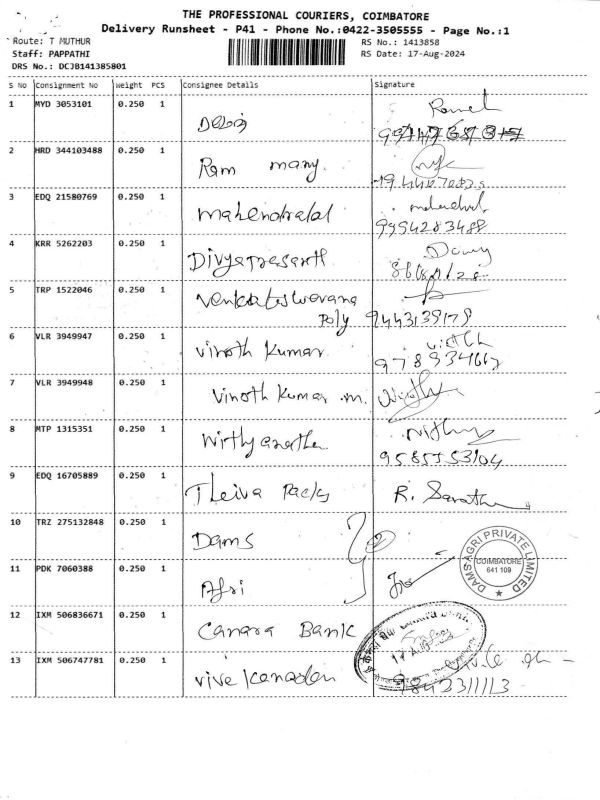 THE PROFESSIONAL COURIERS, COIMBATORE
Delivery Runsheet - P41 - Phone No.:0422-3505555 - Page No.:1
Route: T MUTHUR RS No.: 1413858
Staff: PAPPATHI RS Date: 17-Aug-2024
DRS No.: DCJB141385801
S No Consignment No Weight PCS Consignee Details Signature
1 MYD 3053101 0.250 1
2 HRD 344103488 0.250 1 Ram many
3 EDQ 21580769 0.250 1 mahendralal
9994283488
4 KRR 5262203 0.250 1 Divyaprasanth
5 TRP 1522046 0.250 1 Venkateswarana
Poly 9443139179
6 VLR 3949947 0.250 1 Vinoth Kumar
9789334667
7 VLR 3949948 0.250 1 Vinoth Kumar .m.
8 MTP 1315351 0.250 1 Nithyanantha
9585553104
9 EDQ 16705889 0.250 1 Theiva Packs R. Sarath
10 TRZ 275132848 0.250 1 Dams 2
11 PDK 7060388 0.250 1 Afri
DAMS AGRI PRIVATE LIMITED
COIMBATORE
641 109
12 IXM 506836671 0.250 1 Canara Bank
13 IXM 506747781 0.250 1 Vivekanadan
9842311113